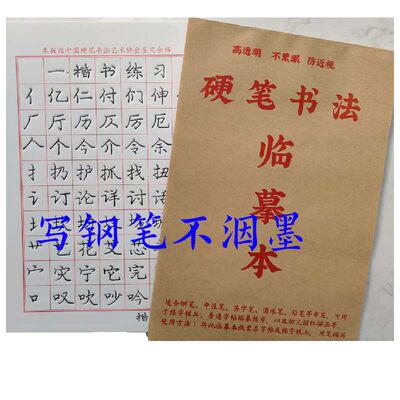 本板经中国硬笔书法艺术协会鉴定合格
一楷书练习
亻亿仁付们伸
厂厅历仄厉厄
人个今介令余
扌扔护抓找扭
讠订论详讨话
宀灾宁它完
口叹吹吵吟
楷
高透明 不累眼 防近视
硬笔书法
临
摹
本
写钢笔不洇墨
适合钢笔、中性笔、签字笔、圆珠笔、铅笔等书写，可用
于练字模具、普通字帖描摹练字，以及幼儿描红描画等。
使用方法：将此临摹本纸蒙在字帖或练字板上，用笔描写